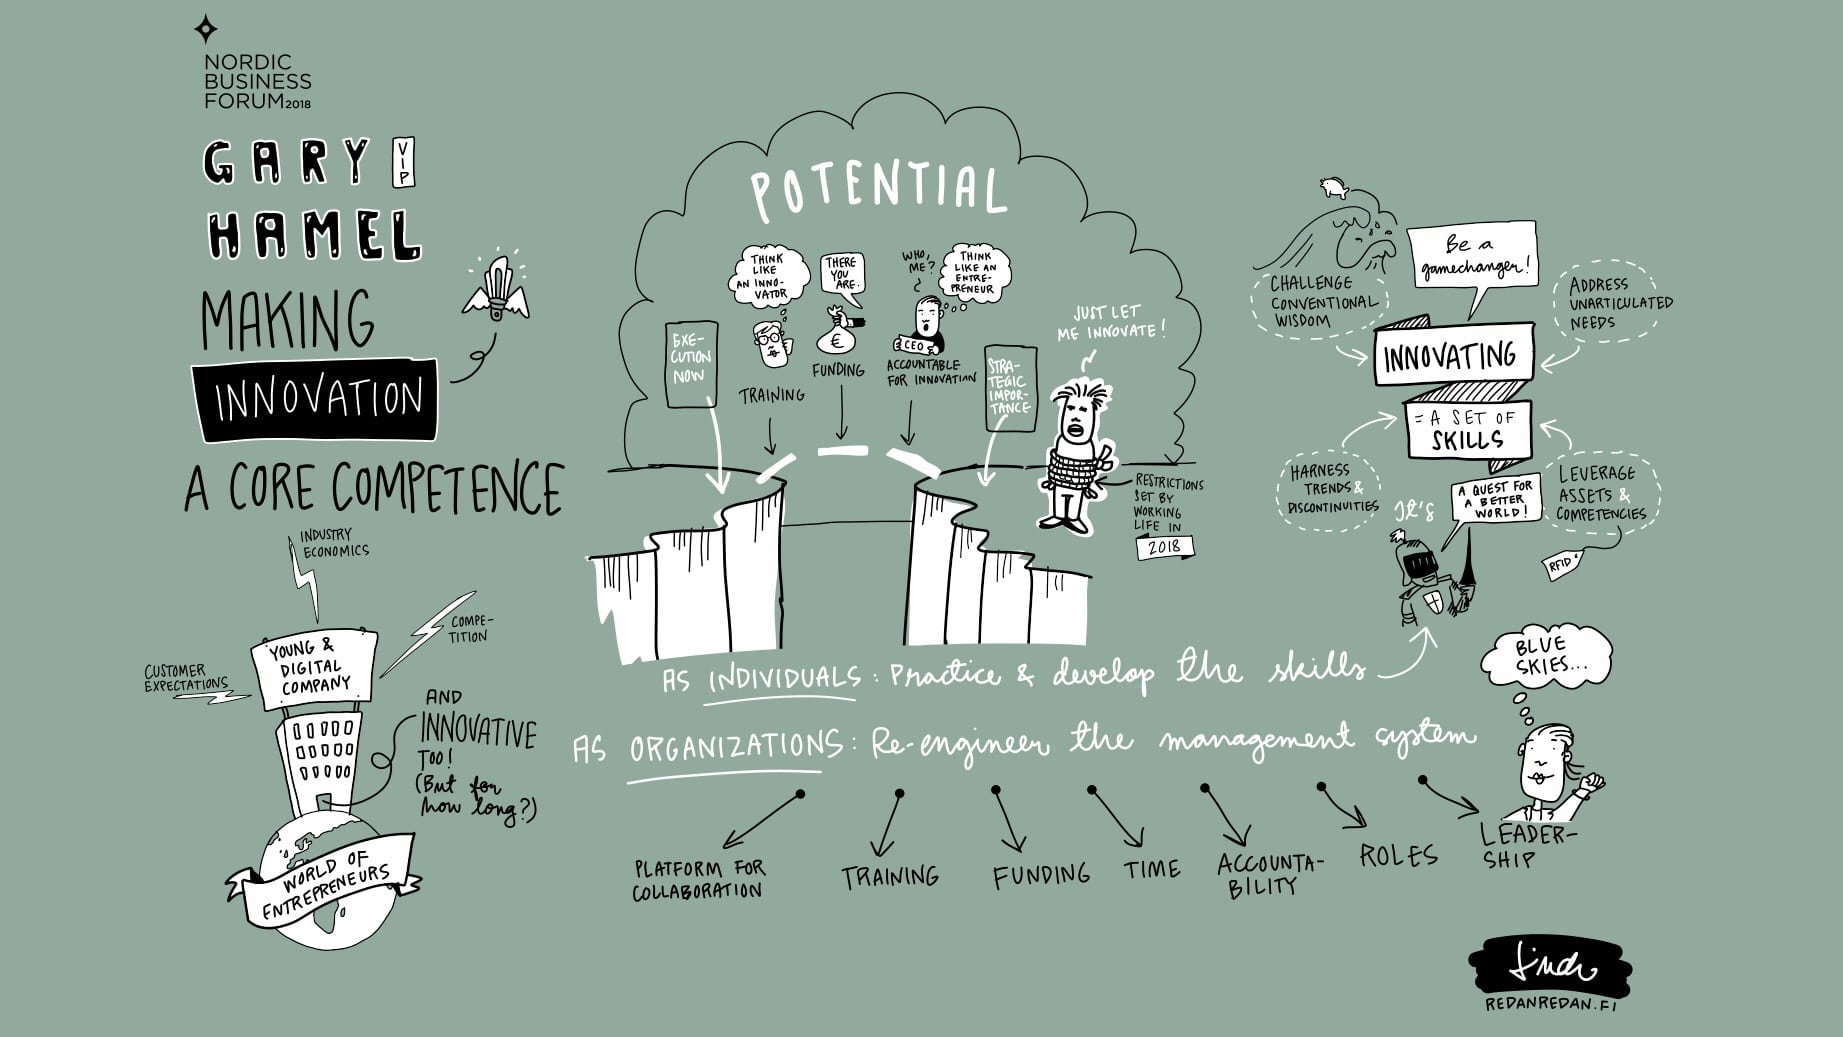 NORDIC
BUSINESS
FORUM2018
GARY VIP
HAMEL
MAKING
INNOVATION
A CORE COMPETENCE
INDUSTRY
ECONOMICS
COMPE-
TITION
CUSTOMER
EXPECTATIONS
YOUNG &
DIGITAL
COMPANY
AND
INNOVATIVE
TOO!
(But for
how long?)
WORLD OF
ENTREPRENEURS
POTENTIAL
EXE-
CUTION
NOW
THINK
LIKE
AN INNO-
VATOR
TRAINING
THERE
YOU
ARE.
€
FUNDING
WHO,
ME?
THINK
LIKE AN
ENTRE-
PRENEUR
CEO
ACCOUNTABLE
FOR INNOVATION
STRA-
TEGIC
IMPOR-
TANCE
JUST LET
ME INNOVATE!
RESTRICTIONS
SET BY
WORKING
LIFE IN
2018
AS INDIVIDUALS: Practice & develop the skills
AS ORGANIZATIONS: Re-engineer the management system
PLATFORM FOR
COLLABORATION
TRAINING
FUNDING
TIME
ACCOUNTA-
BILITY
ROLES
LEADER-
SHIP
Be a
gamechanger!
CHALLENGE
CONVENTIONAL
WISDOM
ADDRESS
UNARTICULATED
NEEDS
INNOVATING
= A SET OF
SKILLS
HARNESS
TRENDS &
DISCONTINUITIES
LEVERAGE
ASSETS &
COMPETENCIES
It's
A QUEST FOR
A BETTER
WORLD!
RFID
BLUE
SKIES...
REDANREDAN.FI